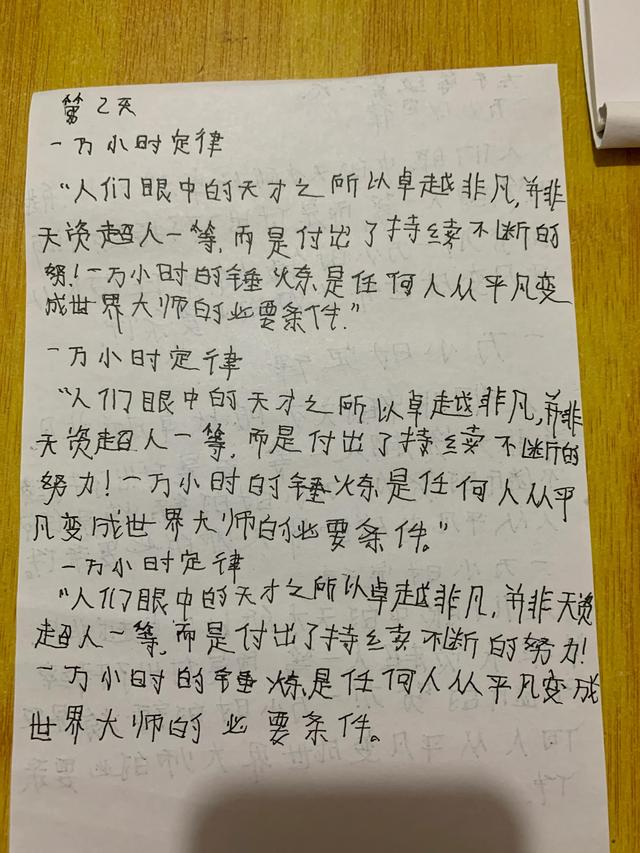 第2天
一万小时定律
“人们眼中的天才之所以卓越非凡,并非
天资超人一等,而是付出了持续不断的
努!一万小时的锤炼是任何人从平凡变
成世界大师的必要条件.”
一万小时定律
“人们眼中的天才之所以卓越非凡,并非
天资超人一等,而是付出了持续不断的
努力!一万小时的锤炼是任何人从平
凡变成世界大师的必要条件。”
一万小时定律
“人们眼中的天才之所以卓越非凡,并非天资
超人一等,而是付出了持续不断的努力!
一万小时的锤炼是任何人从平凡变成
世界大师的必要条件。